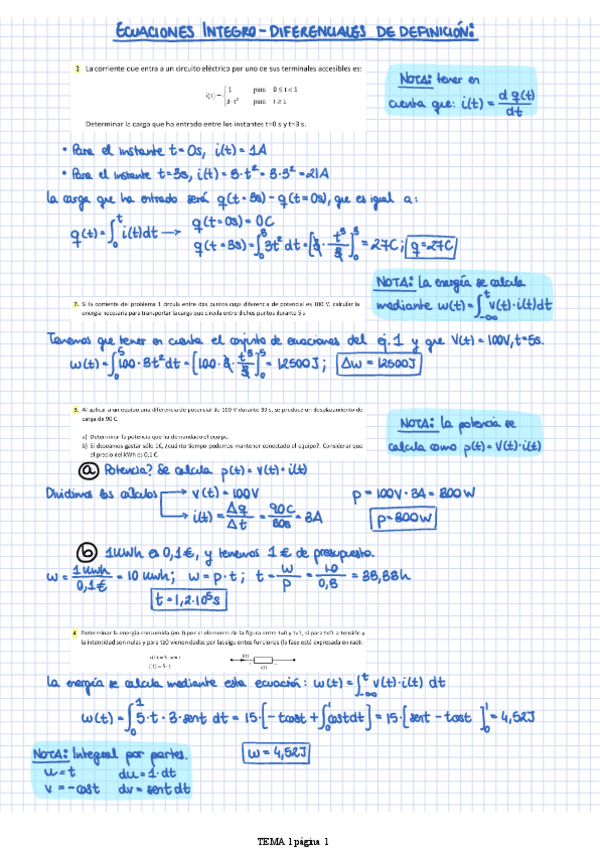 ECUACIONES INTEGRO-DIFERENCIALES DE DEFINICIÓN:
1 La corriente que entra a un circuito eléctrico por uno de sus terminales accesibles es:
i(t) = { 1 para 0 ≤ t < 1
3·t² para t ≥ 1
Determinar la carga que ha entrado entre los instantes t=0 s y t=3 s.
NOTA: tener en
cuenta que: i(t) = d q(t) / dt
• Para el instante t=0s, i(t) = 1A
• Para el instante t=3s, i(t) = 3·t² = 3·3² = 21A
La carga que ha entrado será q(t=3s) - q(t=0s), que es igual a:
q(t) = ∫₀ᵗ i(t)dt → q(t=0s) = 0C
q(t=3s) = ∫₀³ 3t² dt = [3·t³/3]₀³ = 27C; q=27C
NOTA: La energía se calcula
mediante w(t) = ∫₋∞ᵗ v(t)·i(t)dt
2. Si la corriente del problema 1 circula entre dos puntos cuya diferencia de potencial es 100 V, calcular la
energía necesaria para transportar la carga que circula entre dichos puntos durante 5 s
Tenemos que tener en cuenta el conjunto de ecuaciones del ej.1 y que V(t) = 100V, t=5s.
w(t) = ∫₀⁵ 100·3t² dt = [100·3·t³/3]₀⁵ = 12500J; Δw = 12500J
3. Al aplicar a un equipo una diferencia de potencial de 100 V durante 30 s, se produce un desplazamiento de
carga de 90 C.
a) Determinar la potencia que ha demandado el equipo.
b) Si deseamos gastar sólo 1€, ¿cuánto tiempo podemos mantener conectado el equipo?. Considerar que
el precio del kWh es 0,1 €.
NOTA: La potencia se
calcula como p(t) = V(t)·i(t)
a Potencia? Se calcula p(t) = v(t)·i(t)
Dividimos los cálculos → v(t) = 100V
→ i(t) = Δq/Δt = 90C/30s = 3A
p = 100V·3A = 300W
p = 300W
b 1kWh es 0,1€, y tenemos 1€ de presupuesto.
w = 1 kWh/0,1€ = 10 kWh; w = p·t; t = w/p = 10/0,3 = 33,33h
t = 1,2·10⁵s
4. Determinar la energía consumida (en J) por el elemento de la figura entre t=0 y t=1, si para t<0 la tensión y
la intensidad son nulas y para t≥0 vienen dadas por las siguientes funciones (la fase está expresada en rad):
La energía se calcula mediante esta ecuación: w(t) = ∫₋∞ᵗ v(t)·i(t) dt
w(t) = ∫₀¹ 5·t·3·sent dt = 15·[-tcost + ∫₀¹ costdt] = 15·[sent - tcost]₀¹ = 4,52J
w = 4,52J
NOTA: Integral por partes.
u = t du = 1·dt
v = -cost dv = sent dt
TEMA 1 página 1